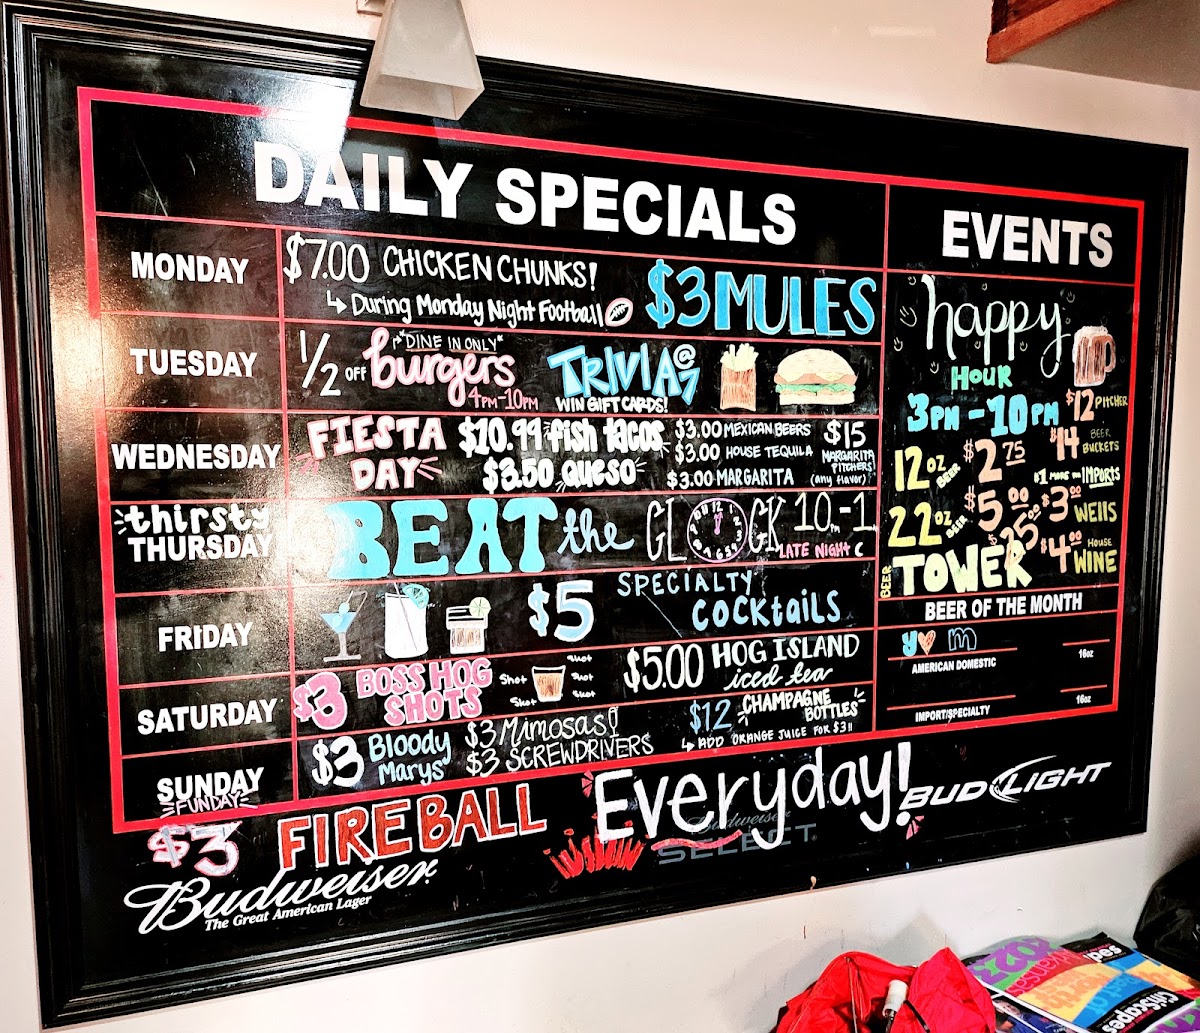 DAILY SPECIALS
MONDAY
$7.00 CHICKEN CHUNKS!
↳ During Monday Night Football
$3 MULES
TUESDAY
1/2 OFF burgers
*DINE IN ONLY*
4PM-10PM
TRIVIA @ 7
WIN GIFT CARDS!
WEDNESDAY
FIESTA DAY
$10.99 fish tacos
$3.50 queso
$3.00 MEXICAN BEERS
$3.00 HOUSE TEQUILA
$3.00 MARGARITA
$15
MARGARITA
PITCHERS!
(any flavor)
thirsty
THURSDAY
BEAT the CLOCK 10PM-1
LATE NIGHT
FRIDAY
$5 SPECIALTY
COCKTAILS
SATURDAY
$3 BOSS HOG
SHOTS
Shot Shot
Shot
Shot Shot
$5.00 HOG ISLAND
iced tea
SUNDAY
FUNDAY
$3 Bloody
Marys
$3 Mimosas!
$3 SCREWDRIVERS
$12 CHAMPAGNE
BOTTLES
↳ ADD ORANGE JUICE FOR $3!!
EVENTS
happy
HOUR
3PM-10PM
$12 PITCHER
$14 BEER
BUCKETS
12oz BEER $2.75
$1 MORE FOR IMPORTS
22oz BEER $5.00
$3.00 WELLS
BEER TOWER $25.00
$4.00 HOUSE
WINE
BEER OF THE MONTH
AMERICAN DOMESTIC
16oz
IMPORT/SPECIALTY
16oz
$3 FIREBALL Everyday!
Budweiser
The Great American Lager
Budweiser
SELECT
BUD LIGHT
2023
CitiScapes